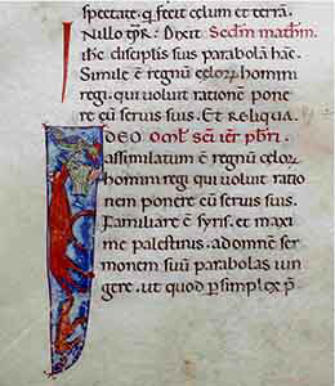 spectate. q̄ fecit cęlum et terrā.
In illo tp̄r̄. Dixit Sēdm mathm̄.
ihc discipl̄is suis parabolā hāc.
Simile ē regnū cęloꝝ homini
regi. qui uoluit rationē pone
re cū seruis suis. Et reliqua.
IDEO Om̄l̄. sc̄i iēr̄ pb̄ri.
assimilatum ē regnū cęloꝝ
homini regi qui uoluit ratio
nem ponere cū seruis suis.
Familiare ē syris. et maxi
me palestinis. ad omnē ser
monem suū parabolas iun
gere. ut quod ꝑ simplex p̄